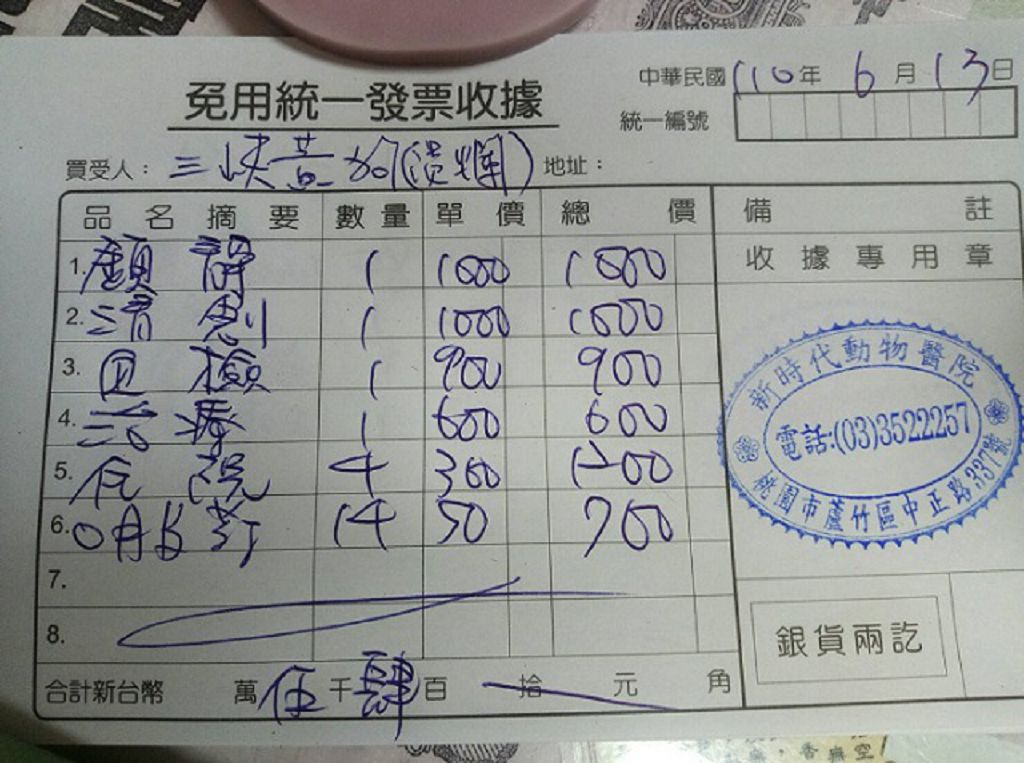 中華民國110年6月13日
免用統一發票收據
統一編號
買受人：三峽黃狗(潰爛) 地址：
品名摘要 數量 單價 總價 備註
收據專用章
1. 顯 1 1000 1000
2. 清創 1 1000 1000
3. 血檢 1 900 900
4. 治療 1 600 600
5. 住院 4 300 1200
6. 口服葯 14 50 700
7.
8.
新時代動物醫院
電話:(03)3522257
桃園市蘆竹區中正路337號
銀貨兩訖
合計新台幣 萬伍千肆百拾元角